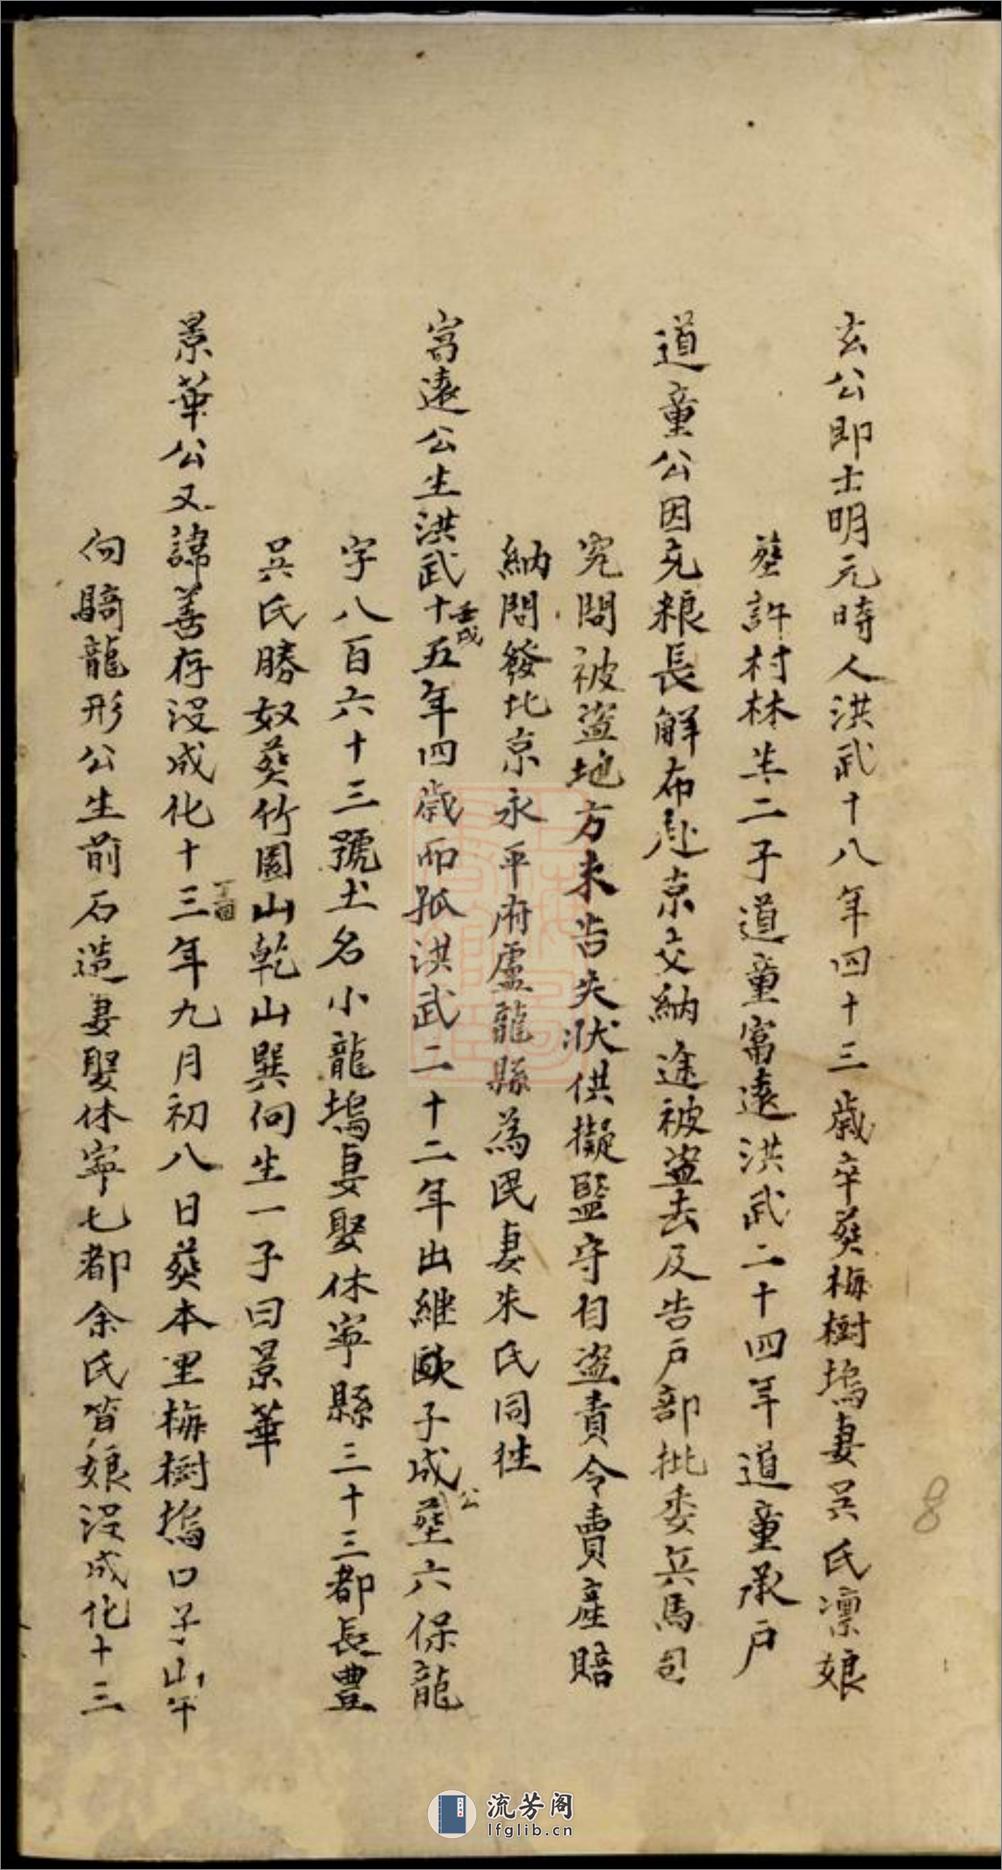 玄公即士明元時人洪武十八年四十三歲卒葬梅樹塢妻吳氏凛娘
塟許村林生二子道童富遠洪武二十四年道童承户
道童公因充粮長解布赴京交納途被盗去及告户部批委兵馬司
究問被盗地方未告失狀供擬監守自盗責令賣產賠
納問發北京永平府盧龍縣為民妻朱氏同往
富遠公生洪武十五壬戌年四歲而孤洪武二十二年出继歐子成公塟六保龍
字八百六十三號土名小龍塢妻娶休寧縣三十三都長豊
吳氏勝奴葬竹園山乾山巽向生一子曰景華
景華公又諱善存没成化十三年九月初八日葬本里梅樹塢口子山午
向騎龍形公生前石造妻娶休寧七都余氏娘没成化十三
8
流芳阁
lfglib.cn